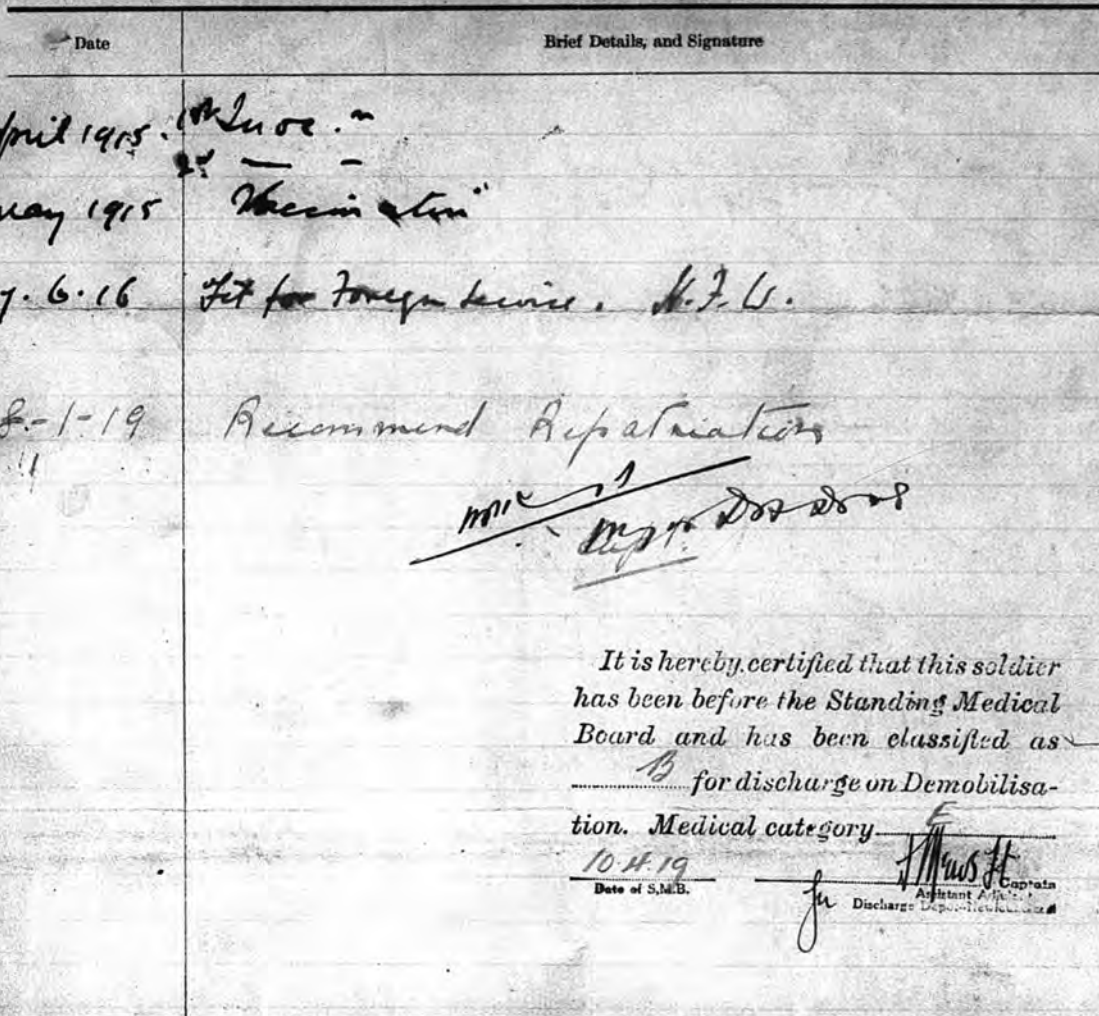 Date Brief Details, and Signature
April 1915. 1st Inoc.n
2nd — –
May 1915 Vaccination
7.6.16 Fit for Foreign Service. N.F.W.
8-1-19 Recommend Repatriation
It is hereby certified that this soldier
has been before the Standing Medical
Board and has been classified as
B for discharge on Demobilisa-
tion. Medical category E
10.4.19
Date of S.M.B. Captain
Assistant
Discharge Depot